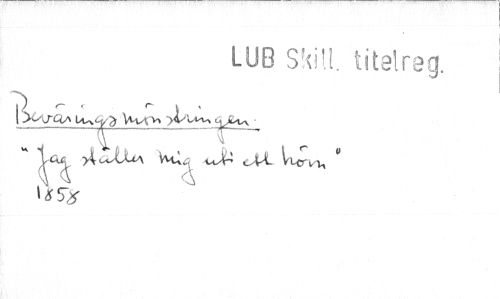 LUB Skill. titelreg.
Beväringsmönstringen.
"Jag ställer mig uti ett hörn"
1858